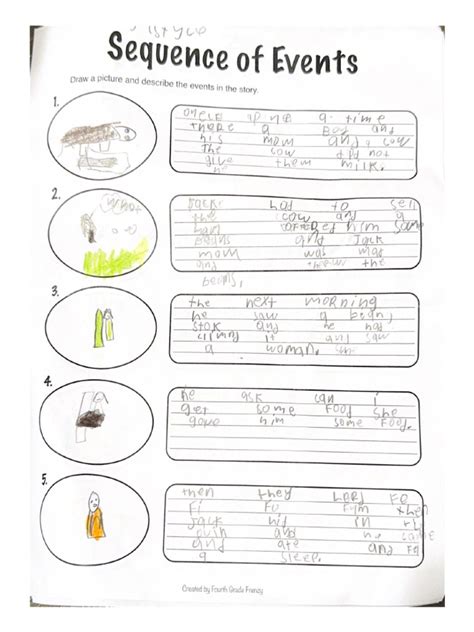 Sequence of Events
Draw a picture and describe the events in the story.
1.
a time
there a Boy and
his mom and a cow
the cow did not
give them milk.
2.
what
Jack had to sell
the cow and a
man him some
beans and Jack
mom was mad
and the
beans,
3.
the next morning
he saw a bean,
stok and he had
it and saw
a woman.
4.
he ask can i
get some Food she
gave him some Food.
5.
then they Fe
Fi Fo Fum then
Jack hid in the
and he came
and ate and Fe
a sleep.
Created by Fourth Grade Frenzy